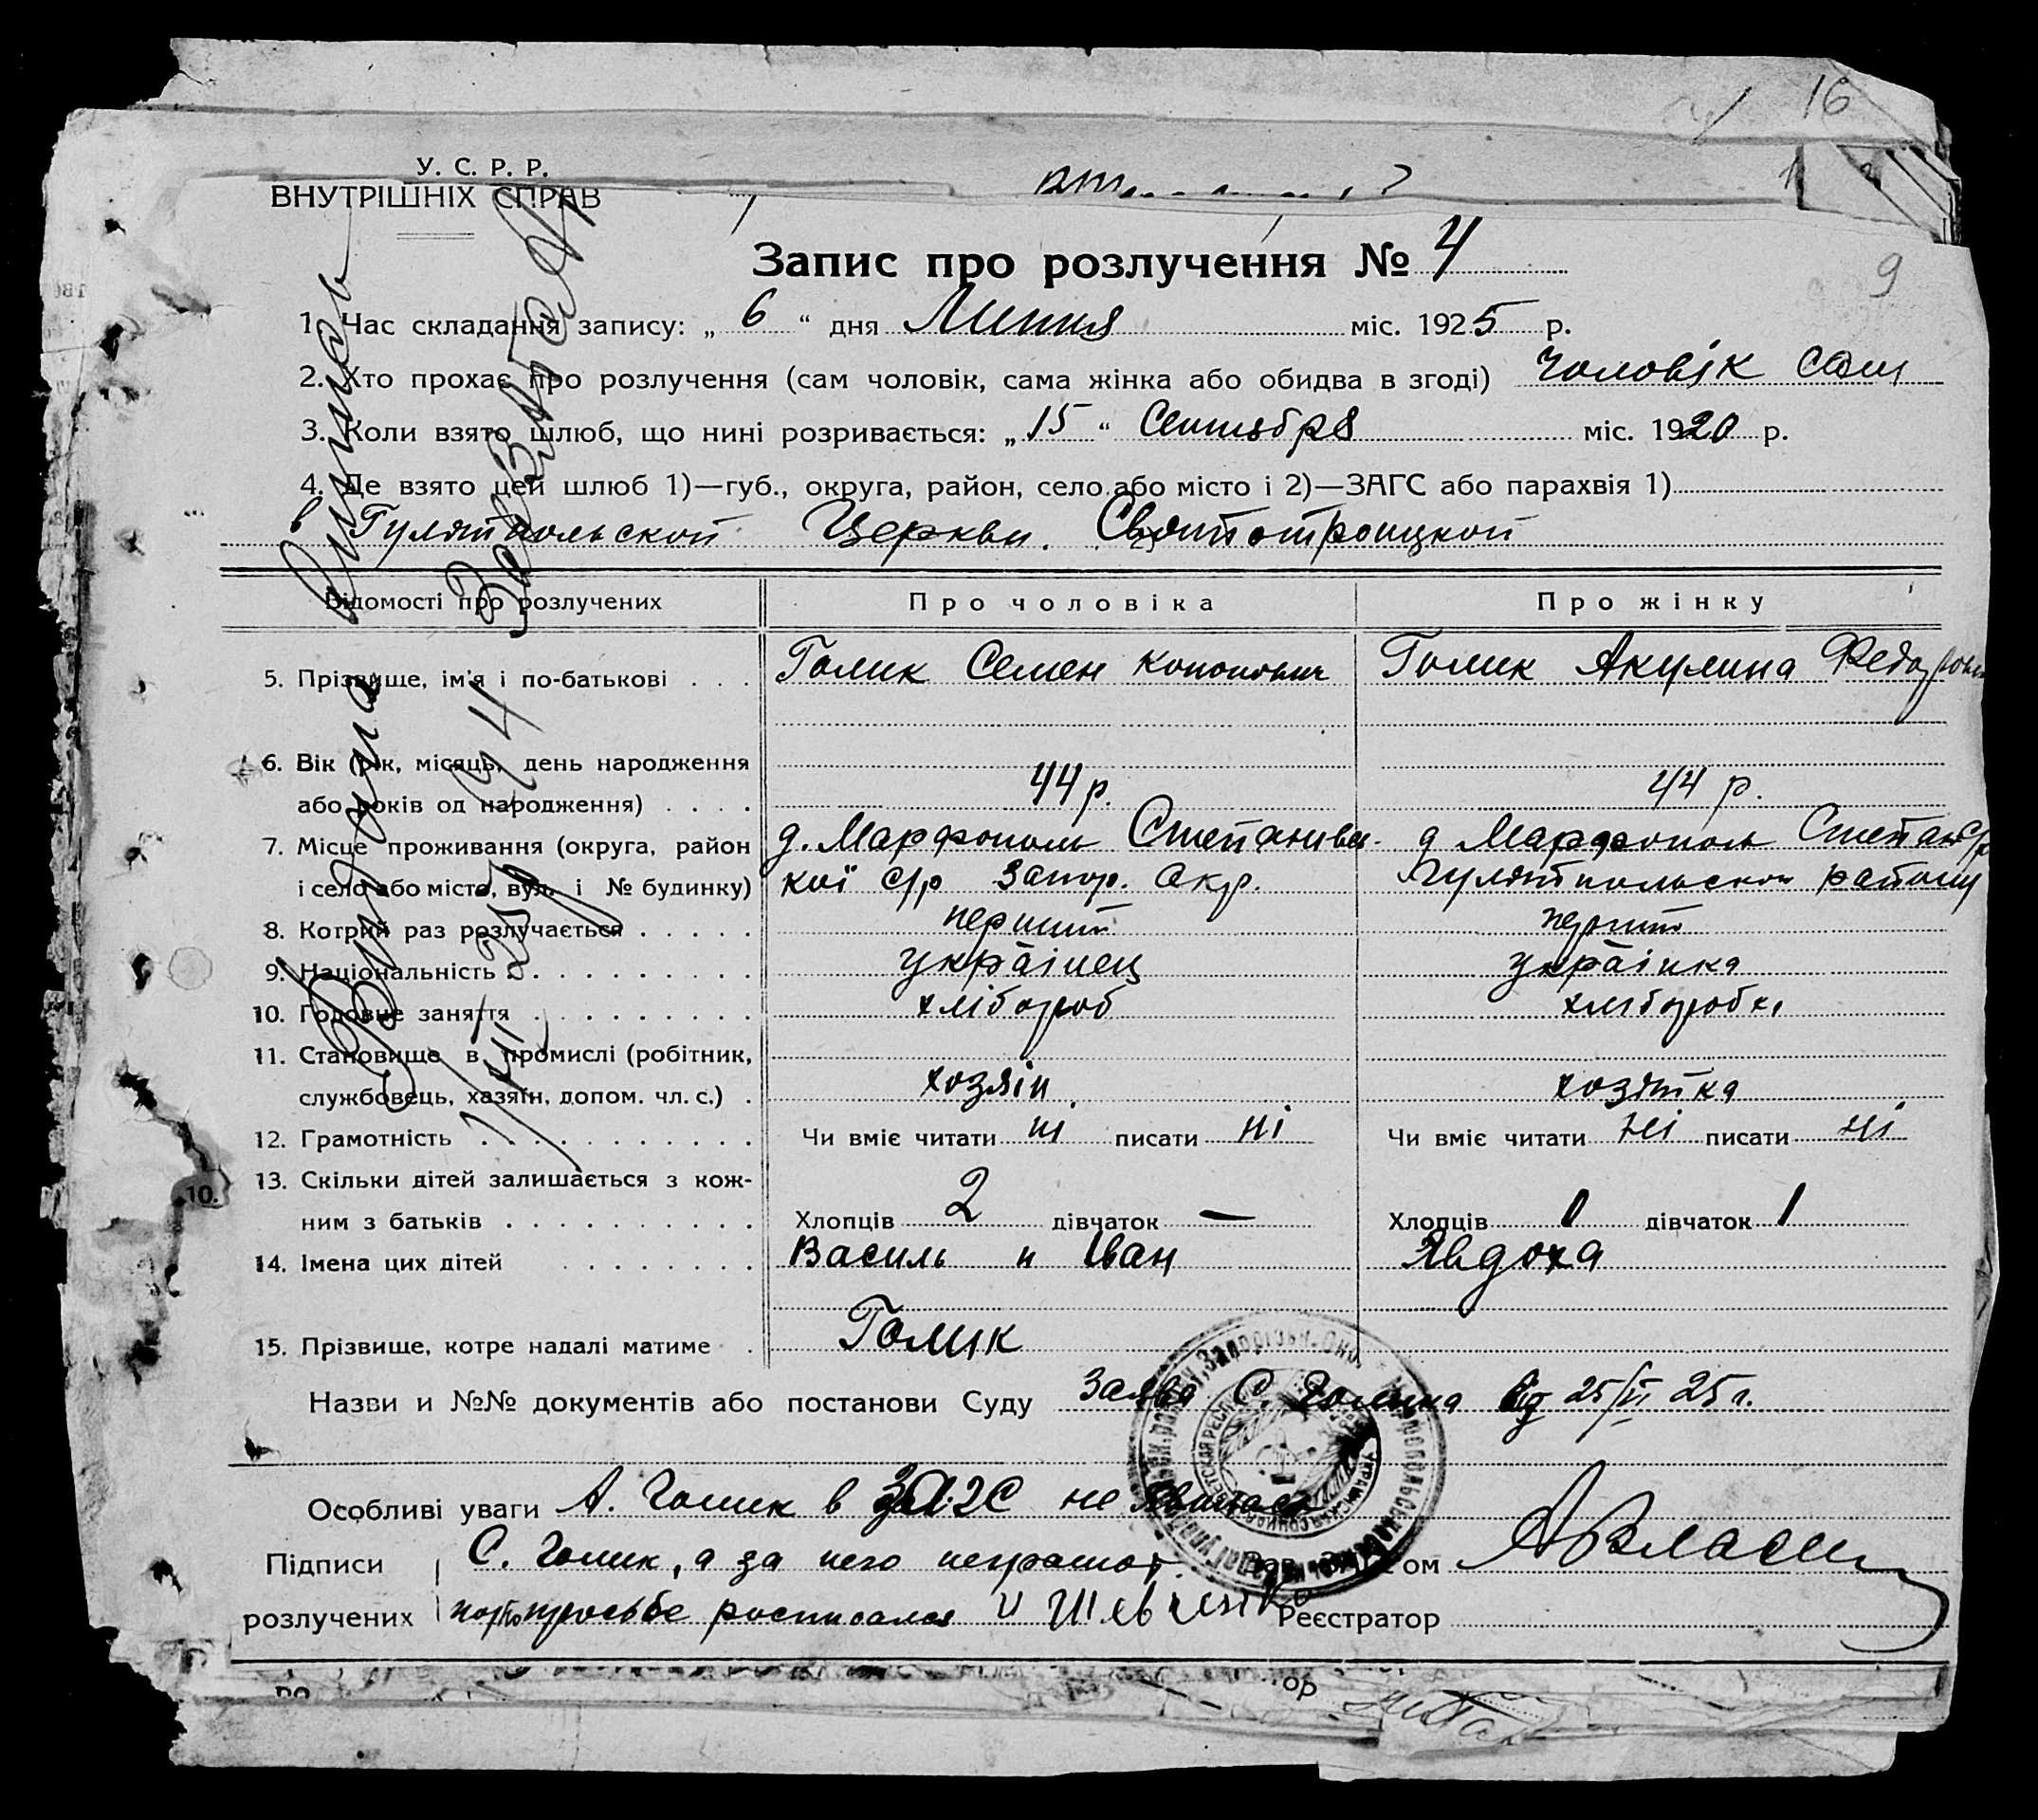 16
У. С. Р. Р.
ВНУТРІШНІХ СПРАВ
9
Запис про розлучення № 4
1. Час складання запису: „ 6 “ дня Липня міс. 1925 р.
2. Хто прохає про розлучення (сам чоловік, сама жінка або обидва в згоді) Чоловік сам
3. Коли взято шлюб, що нині розривається: „ 15 “ Сентября міс. 1920 р.
4. Де взято цей шлюб 1)—губ., округа, район, село або місто і 2)—ЗАГС або парахвія 1)
в Гуляйпольской Церкви. Святотроицкой
Відомості про розлучених Про чоловіка Про жінку
5. Прізвище, ім'я і по-батькові Голик Семен Кононович Голик Акулина Федоровна
6. Вік (рік, місяць, день народження
або років од народження) 44 р. 44 р.
7. Місце проживання (округа, район д. Марфополь Степанивсь- д Марфополь Степан с/р
і село або місто, вул. і № будинку) кої с/р Запор. Окр. Гуляйпольском району
8. Котрий раз розлучається перший перший
9. Національність украінец украінка
10. Головне заняття хлібороб хлiборобка
11. Становище в промислі (робітник,
службовець, хазяїн, допом. чл. с.) хозяін хозяйка
12. Грамотність Чи вміє читати ні писати ні Чи вміє читати ні писати ні
13. Скільки дітей залишається з кож-
ним з батьків Хлопців 2 дівчаток — Хлопців 0 дівчаток 1
14. Імена цих дітей Василь и Іван Явдоха
15. Прізвище, котре надалі матиме Голик
Назви и №№ документів або постанови Суду Заява С. Голика від 25/VI 25 г.
Особливі уваги А. Голик в ЗАГС не явилась
Підписи С. Голик, а за него неграмот. Зав. ЗАГС'ом
розлучених по его просьбе росписался И Шевченко Реєстратор
10.